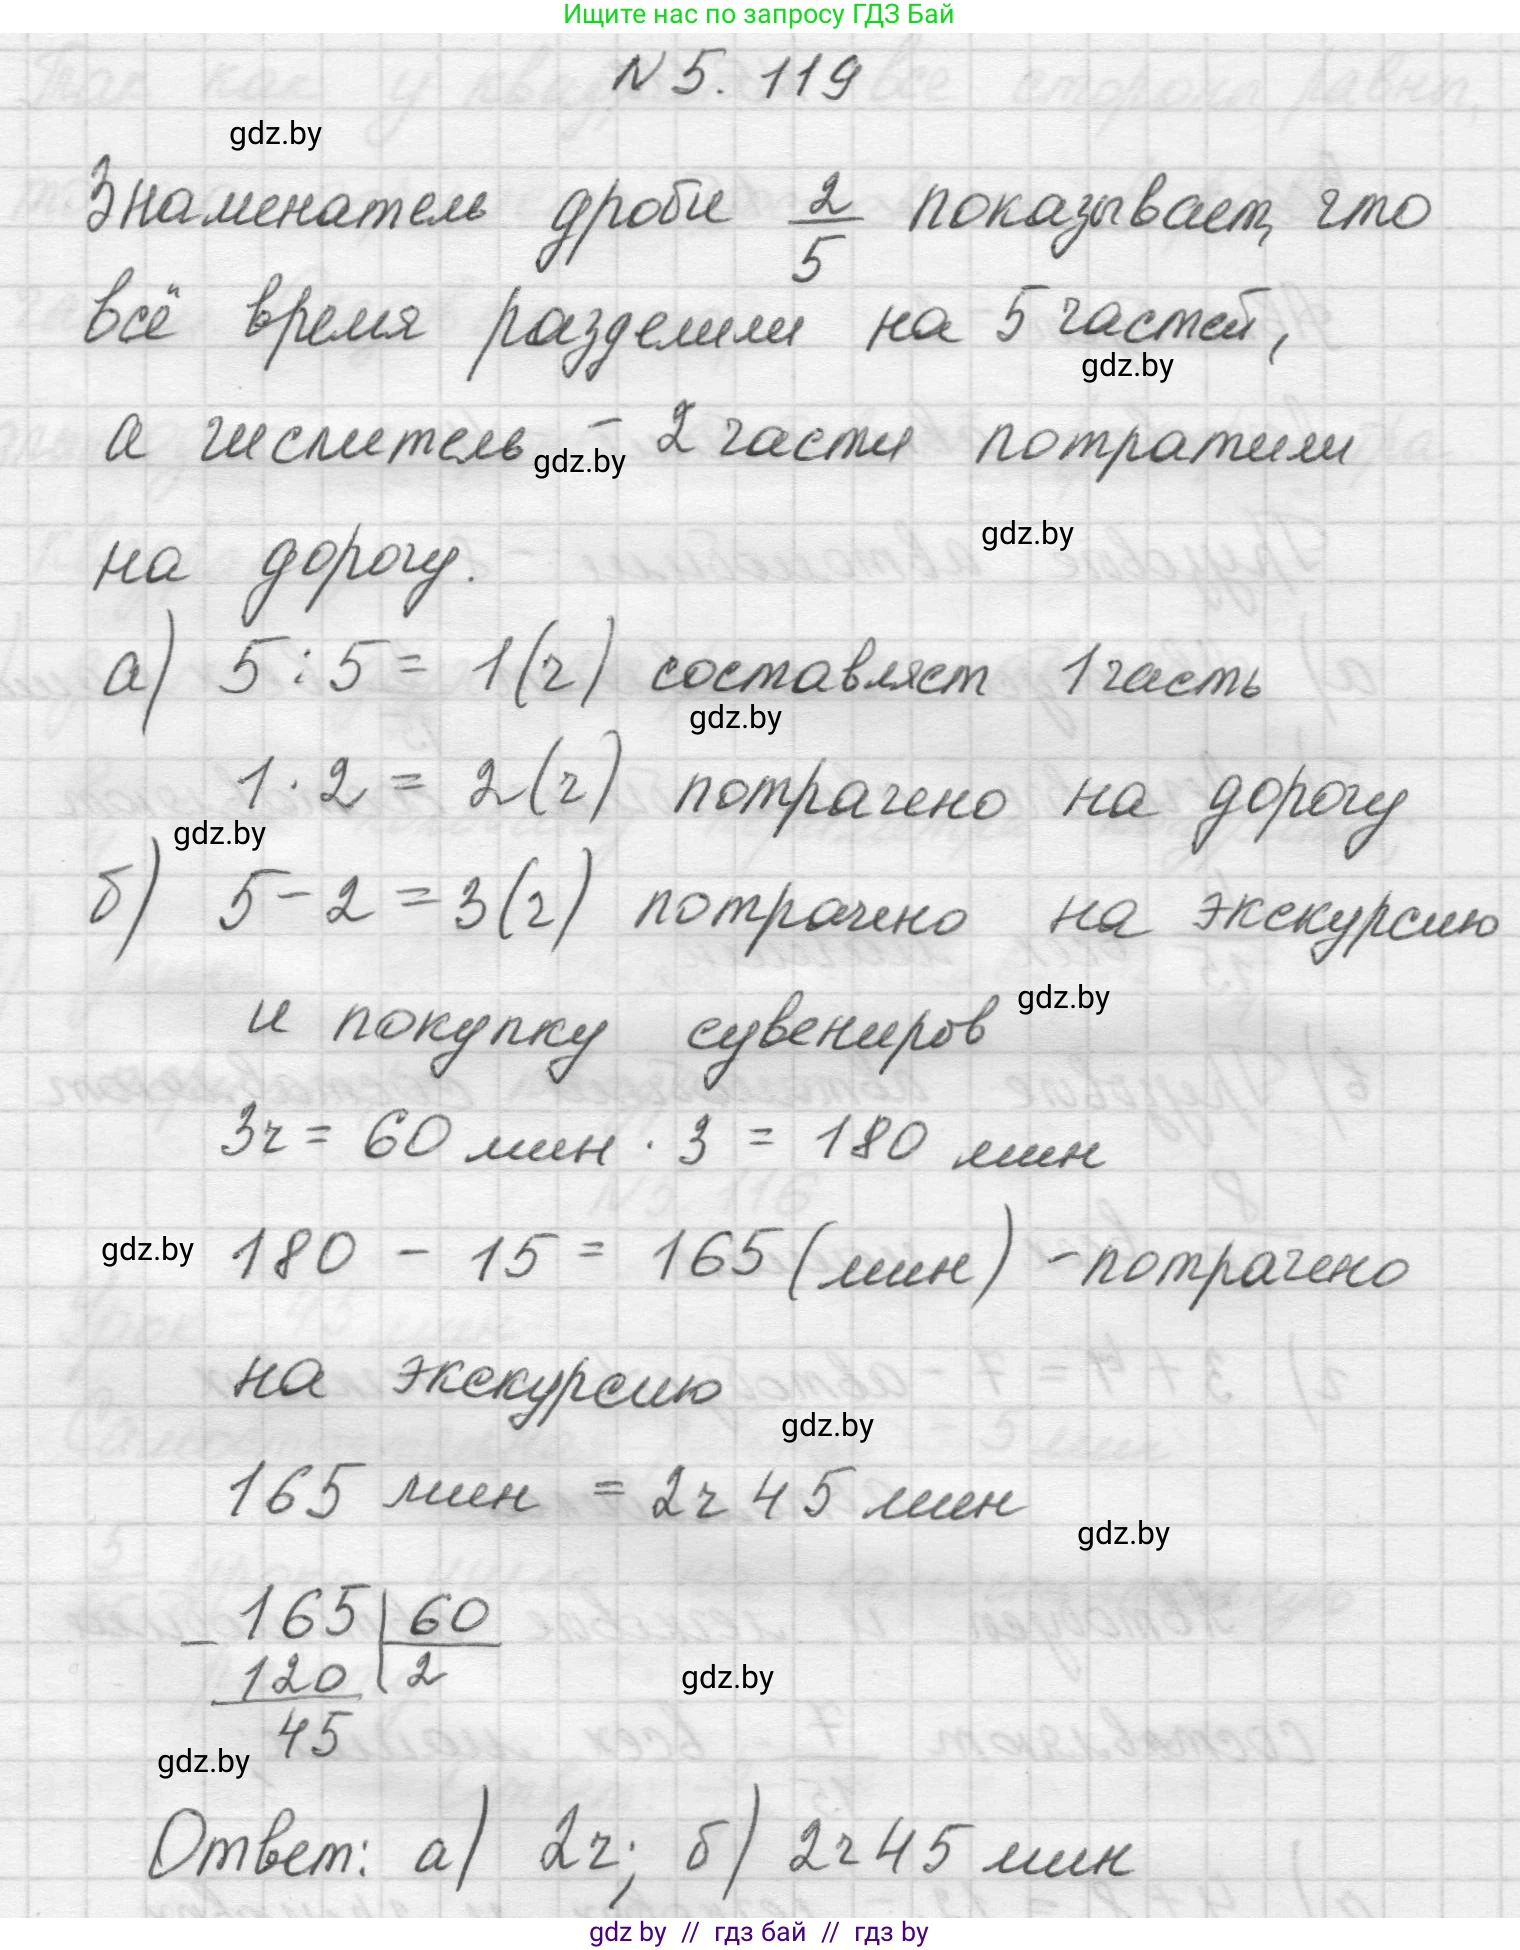 Ищите нас по запросу ГДЗ Бай
N 5. 119
gdz.by
Знаменатель дроби 2/5 показывает, что
всё время разделили на 5 частей,
gdz.by
а числитель - 2 части потратили
gdz.by
gdz.by
на дорогу.
а) 5 : 5 = 1 (ч) составляет 1 часть
gdz.by
1 · 2 = 2 (ч) потрачено на дорогу
gdz.by
б) 5 - 2 = 3 (ч) потрачено на экскурсию
gdz.by
и покупку сувениров
3ч = 60 мин · 3 = 180 мин
gdz.by 180 - 15 = 165 (мин) - потрачено
на экскурсию
gdz.by
165 мин = 2ч 45 мин
gdz.by
- 165 | 60
120 | 2
gdz.by
45
gdz.by
Ответ: а) 2ч; б) 2ч 45 мин
gdz by // гдз бай // гдз by